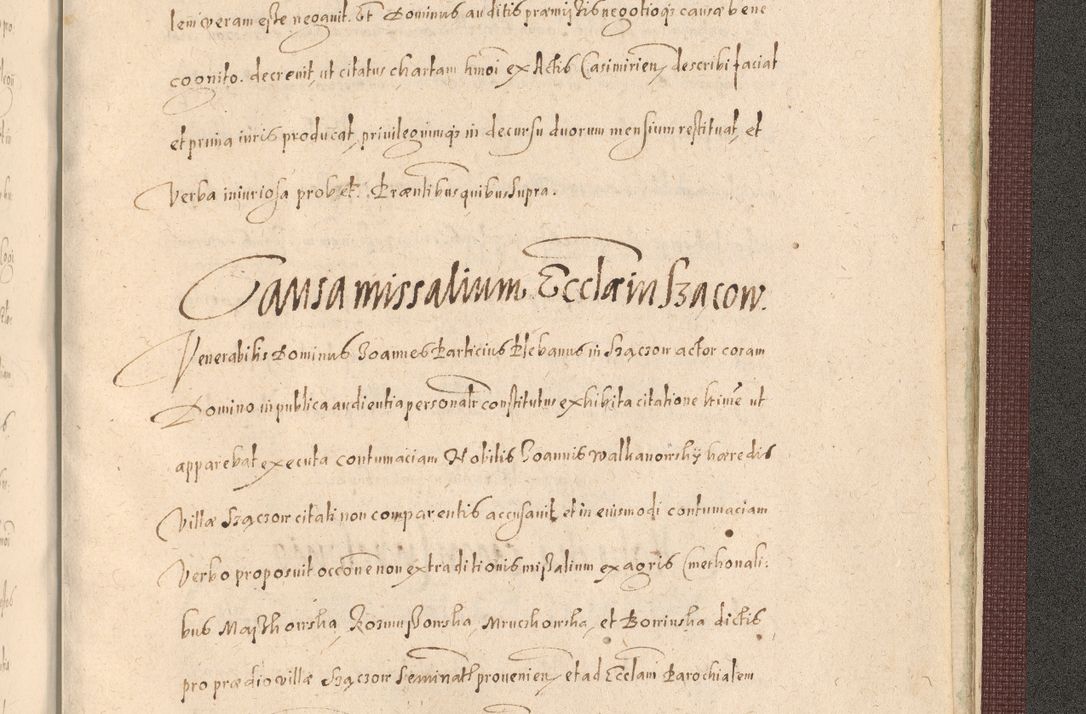 lem veram esse negavit. Et Dominus auditis præmissis negotioq3 causæ bene
cognito. decrevit, ut citatus chartam hmōi ex Actis Casimirien, describi faciat
et prima iuris producat, privilegiumq3 in decursu duorum mensium restituat, et
Verba iniuriosa probet. Præntibus quibus supra.
Causa missalium Ecclæ in Szaczow.
Venerabilis Dominus Joannes Particius Plebanus in Szączow actor coram
Domino in publica audientia personalr constitutus exhibita citatione ltime ut
apparebat executa contumaciam Nobilis Joannis Walkanowsky hæredis
Villæ Szączow citati non comparentis accusavit, et in eiusmodi contumaciam
Verbo proposuit occōne non extraditionis missalium ex agris Cmethonali:
bus Mayzkowska, Rozmussowska, Mruczkowska, et Bowinska dictis
pro prædio villæ Szączow seminatt provenien, et ad Ecclam Parochialem